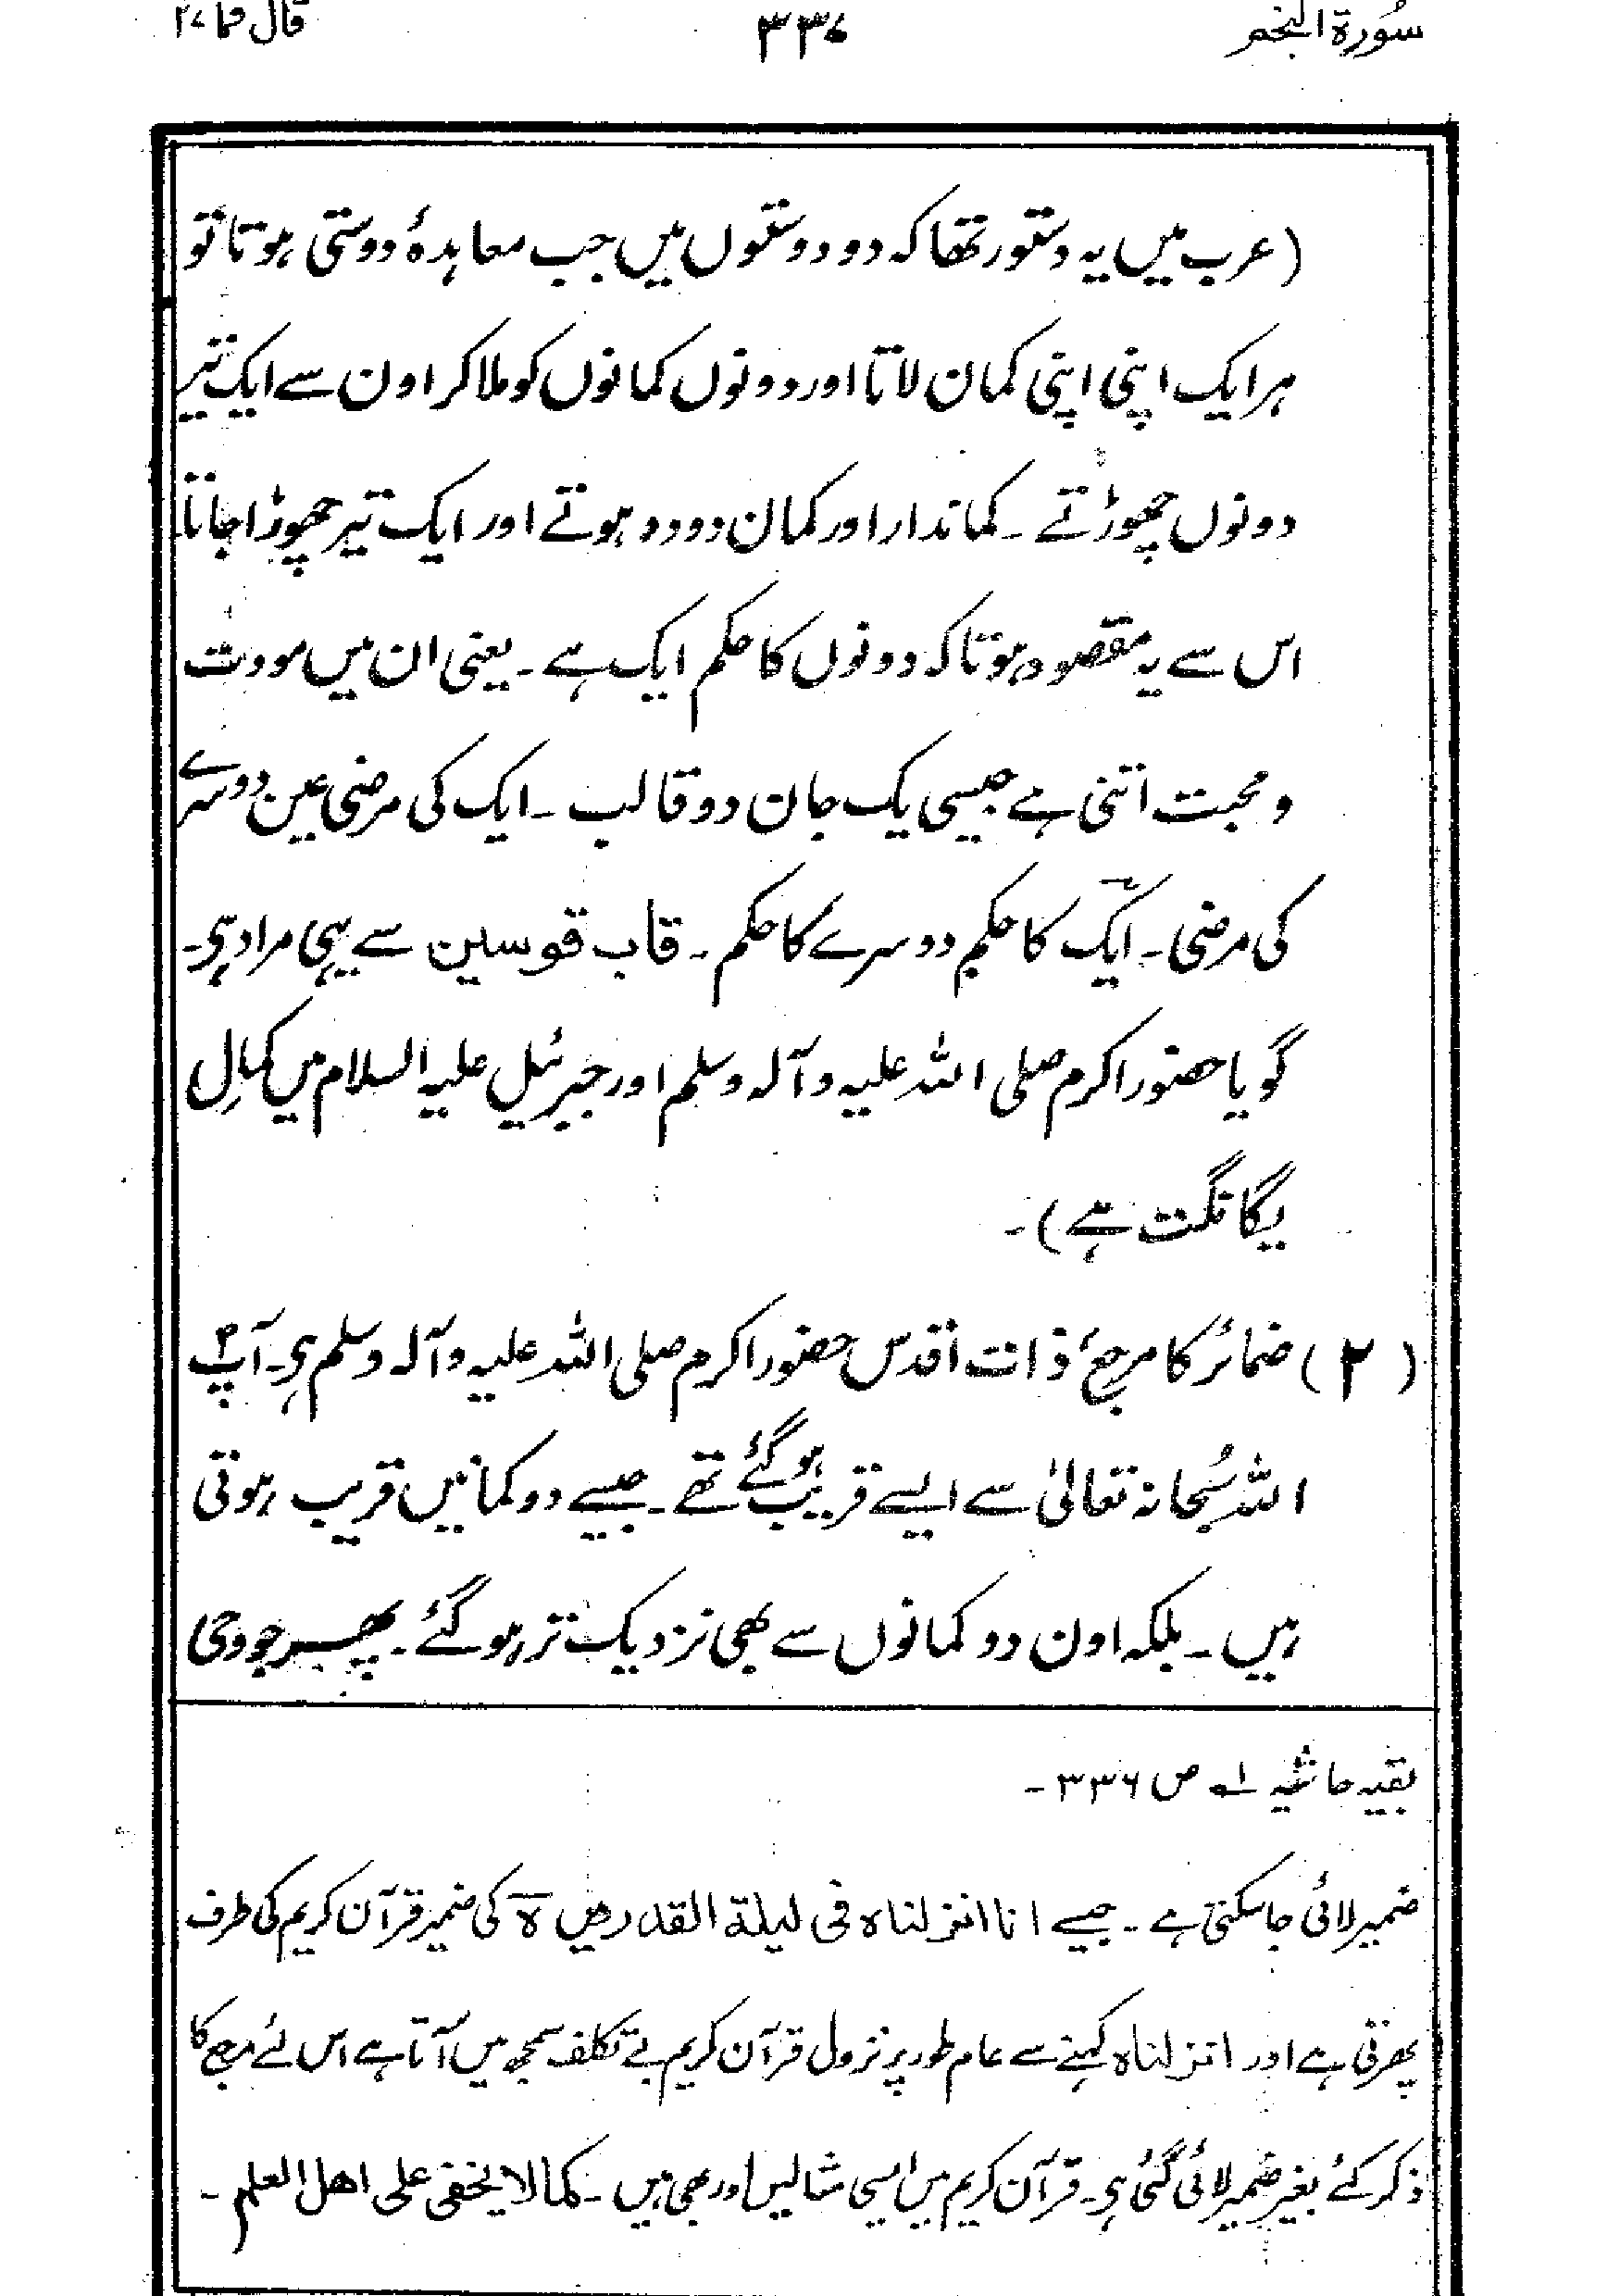 سُورة النجم
۳۳۷
قال فما ۲۷
(عرب میں یہ دستور تھا کہ دو دوستوں میں جب معاہدۂ دوستی ہوتا تو
ہر ایک اپنی اپنی کمان لاتا اور دونوں کمانوں کو ملا کر اون سے ایک تیر
دونوں چھوڑتے ۔ کماندار اور کمان دو دو ہوتے اور ایک تیر چھوڑا جاتا۔
اس سے یہ مقصود ہوتا کہ دونوں کا حکم ایک ہے ۔ یعنی ان میں مودت
و محبت اتنی ہے جیسی یک جان دو قالب ۔ ایک کی مرضی عین دوسرے
کی مرضی ۔ ایک کا حکم دوسرے کا حکم ۔ قاب قوسین سے یہی مراد ہی۔
گویا حضور اکرم صلی اللہ علیہ و آلہ وسلم اور جبرئیل علیہ السلام میں کمالِ
یگانگت ہے) ۔
(۲) ضمائر کا مرجع ذات اقدس حضور اکرم صلی اللہ علیہ و آلہ وسلم ہی۔ آپؐ
اللہ سُبحانہ تعالیٰ سے ایسے قریب ہو گئے تھے ۔ جیسے دو کمانیں قریب ہوتی
ہیں ۔ بلکہ اون دو کمانوں سے بھی نزدیک تر ہو گئے ۔ پھر جو وحی
بقیہ حاشیہ ۱ ص ۳۳۶ ۔
ضمیر لائی جا سکتی ہے ۔ جیسے انا انزلناہ فی لیلة القدر میں ہ کی ضمیر قرآن کریم کی طرف
پھرتی ہے اور انزلناہ کہنے سے عام طور پر نزول قرآن کریم بے تکلف سمجھ میں آتا ہے اس لئے مرجع کا
ذکر کئے بغیر ضمیر لائی گئی ہی۔ قرآن کریم میں ایسی مثالیں اور بھی ہیں ۔ کما لا یخفی علی اھل العلم ۔